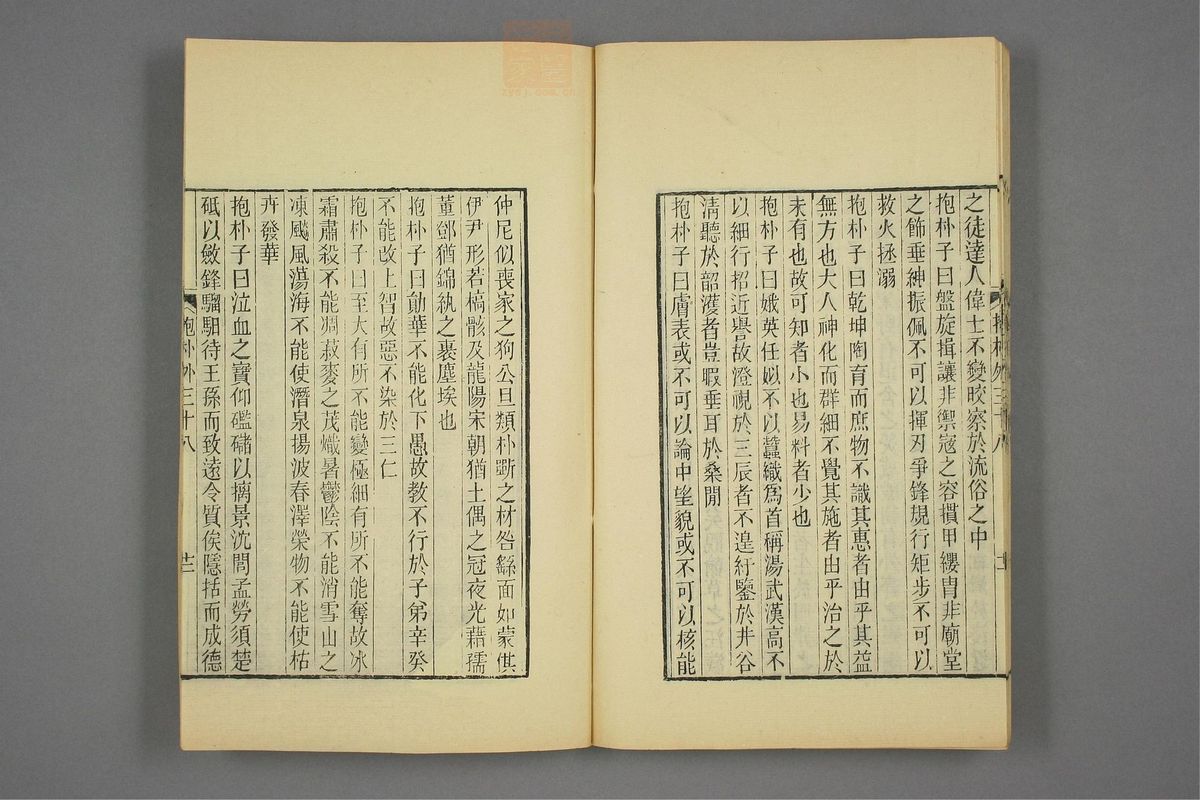 之徒達人偉士不變晈察於流俗之中
抱朴子曰盤旋揖讓非禦寇之容摜甲纓胄非廟堂
之飾垂紳振佩不可以揮刃爭鋒規行矩步不可以
救火拯溺
抱朴子曰乾坤陶育而庶物不識其惠者由乎其益
無方也大人神化而群細不覺其施者由乎治之於
未有也故可知者小也易料者少也
抱朴子曰娥英任姒不以蠶織爲首稱湯武漢高不
以細行招近譽故澄視於三辰者不遑紆鑒於井谷
清聽於韶濩者豈暇垂耳於桑閒
抱朴子曰膚表或不可以論中望貌或不可以核能
抱朴外三十八
仲尼似喪家之狗公旦類朴斲之材咎繇面如蒙倛
伊尹形若槁骸及龍陽宋朝猶土偶之冠夜光藉孺
董鄧猶錦紈之裹塵埃也
抱朴子曰勛華不能化下愚故教不行於子弟辛癸
不能改上智故惡不染於三仁
抱朴子曰至大有所不能變極細有所不能奪故冰
霜肅殺不能凋菽麥之茂熾暑鬱陰不能消雪山之
凍飈風蕩海不能使潛泉揚波春澤榮物不能使枯
卉發華
抱朴子曰泣血之寶仰礛䃴以摛景沈閭孟勞須楚
砥以斂鋒騮駬待王孫而致遠令質俟隱括而成德
抱朴外三十八
十二
zydj.com.cn